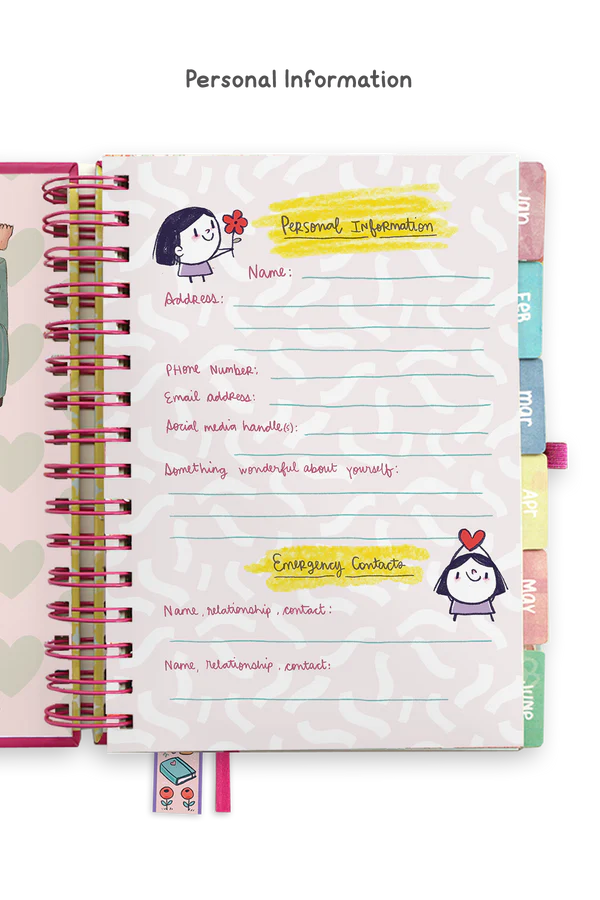 Personal Information
Personal Information
Name:
Address:
Phone Number:
Email address:
Social media handle(s):
Something wonderful about yourself:
Emergency Contacts
Name, relationship, contact:
Name, relationship, contact:
Jan
Feb
Mar
Apr
May
June